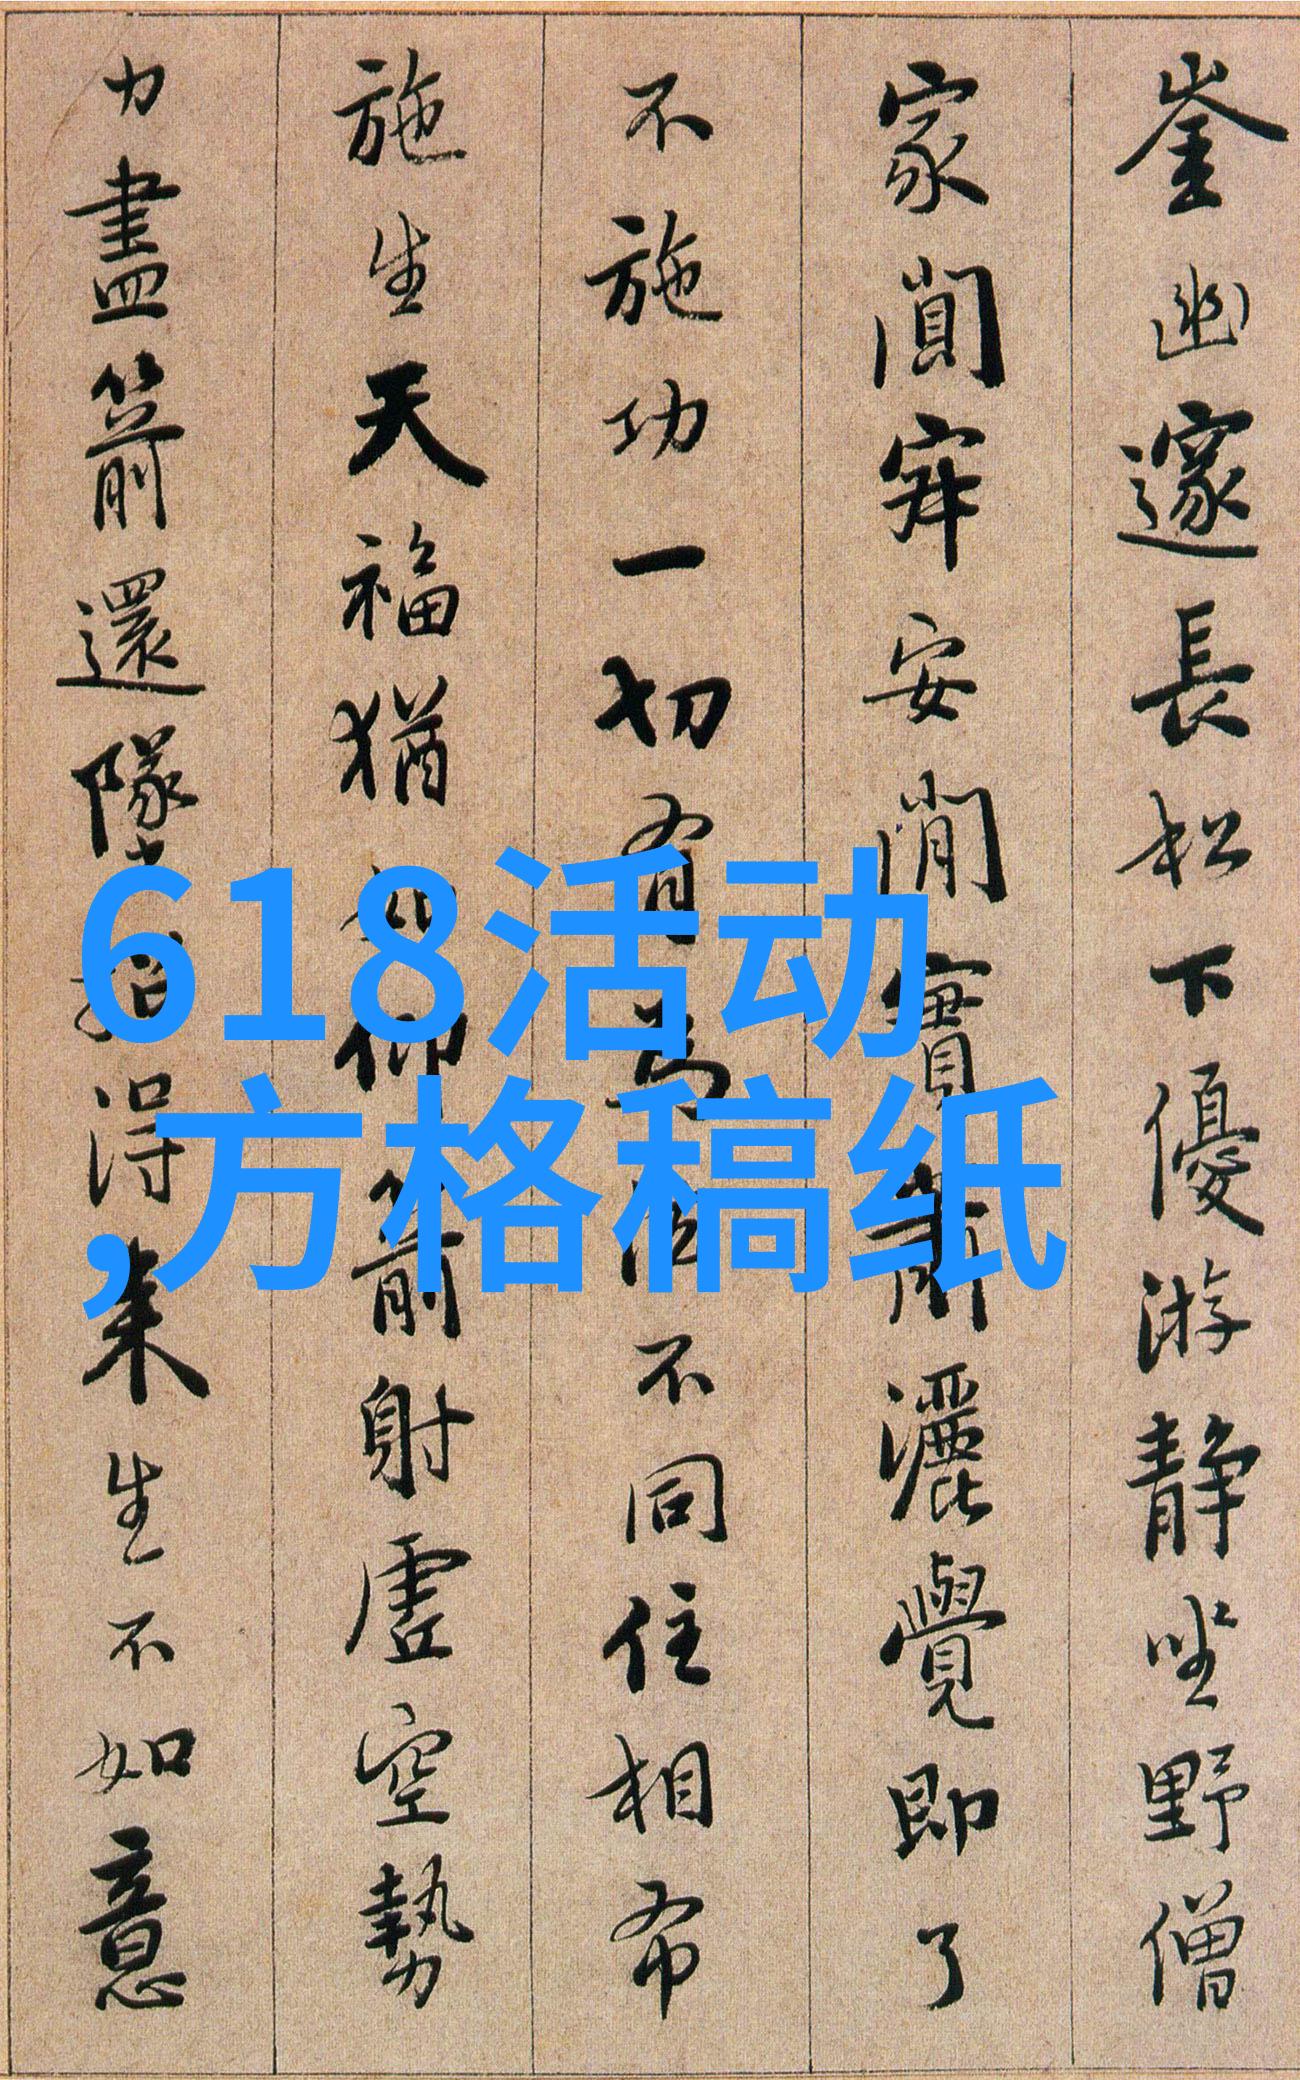 崟幽邃長松下優游静坐野僧
家闃寂安閑實蕭灑覺即了
不施功一切有為法不同住相布
施生天福猶如仰箭射虛空勢
力盡箭還墜招得来生不如意
618活动
,方格稿纸